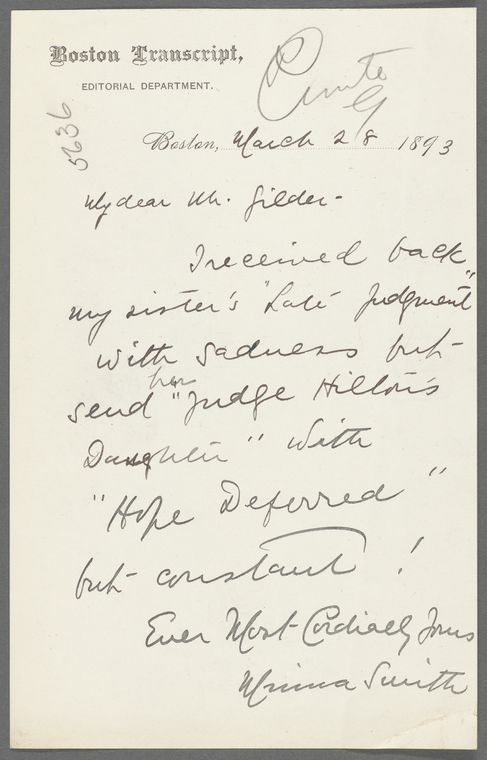 Boston Transcript,
EDITORIAL DEPARTMENT.
5636
G
Boston, March 28 1893
My dear Mr. Gilder-
I received back
my sister's "Late Judgment"
with sadness but
send her "Judge Hilton's
Daughter" with
"Hope Deferred"
but constant!
Ever Most Cordially Yours
Minna Smith